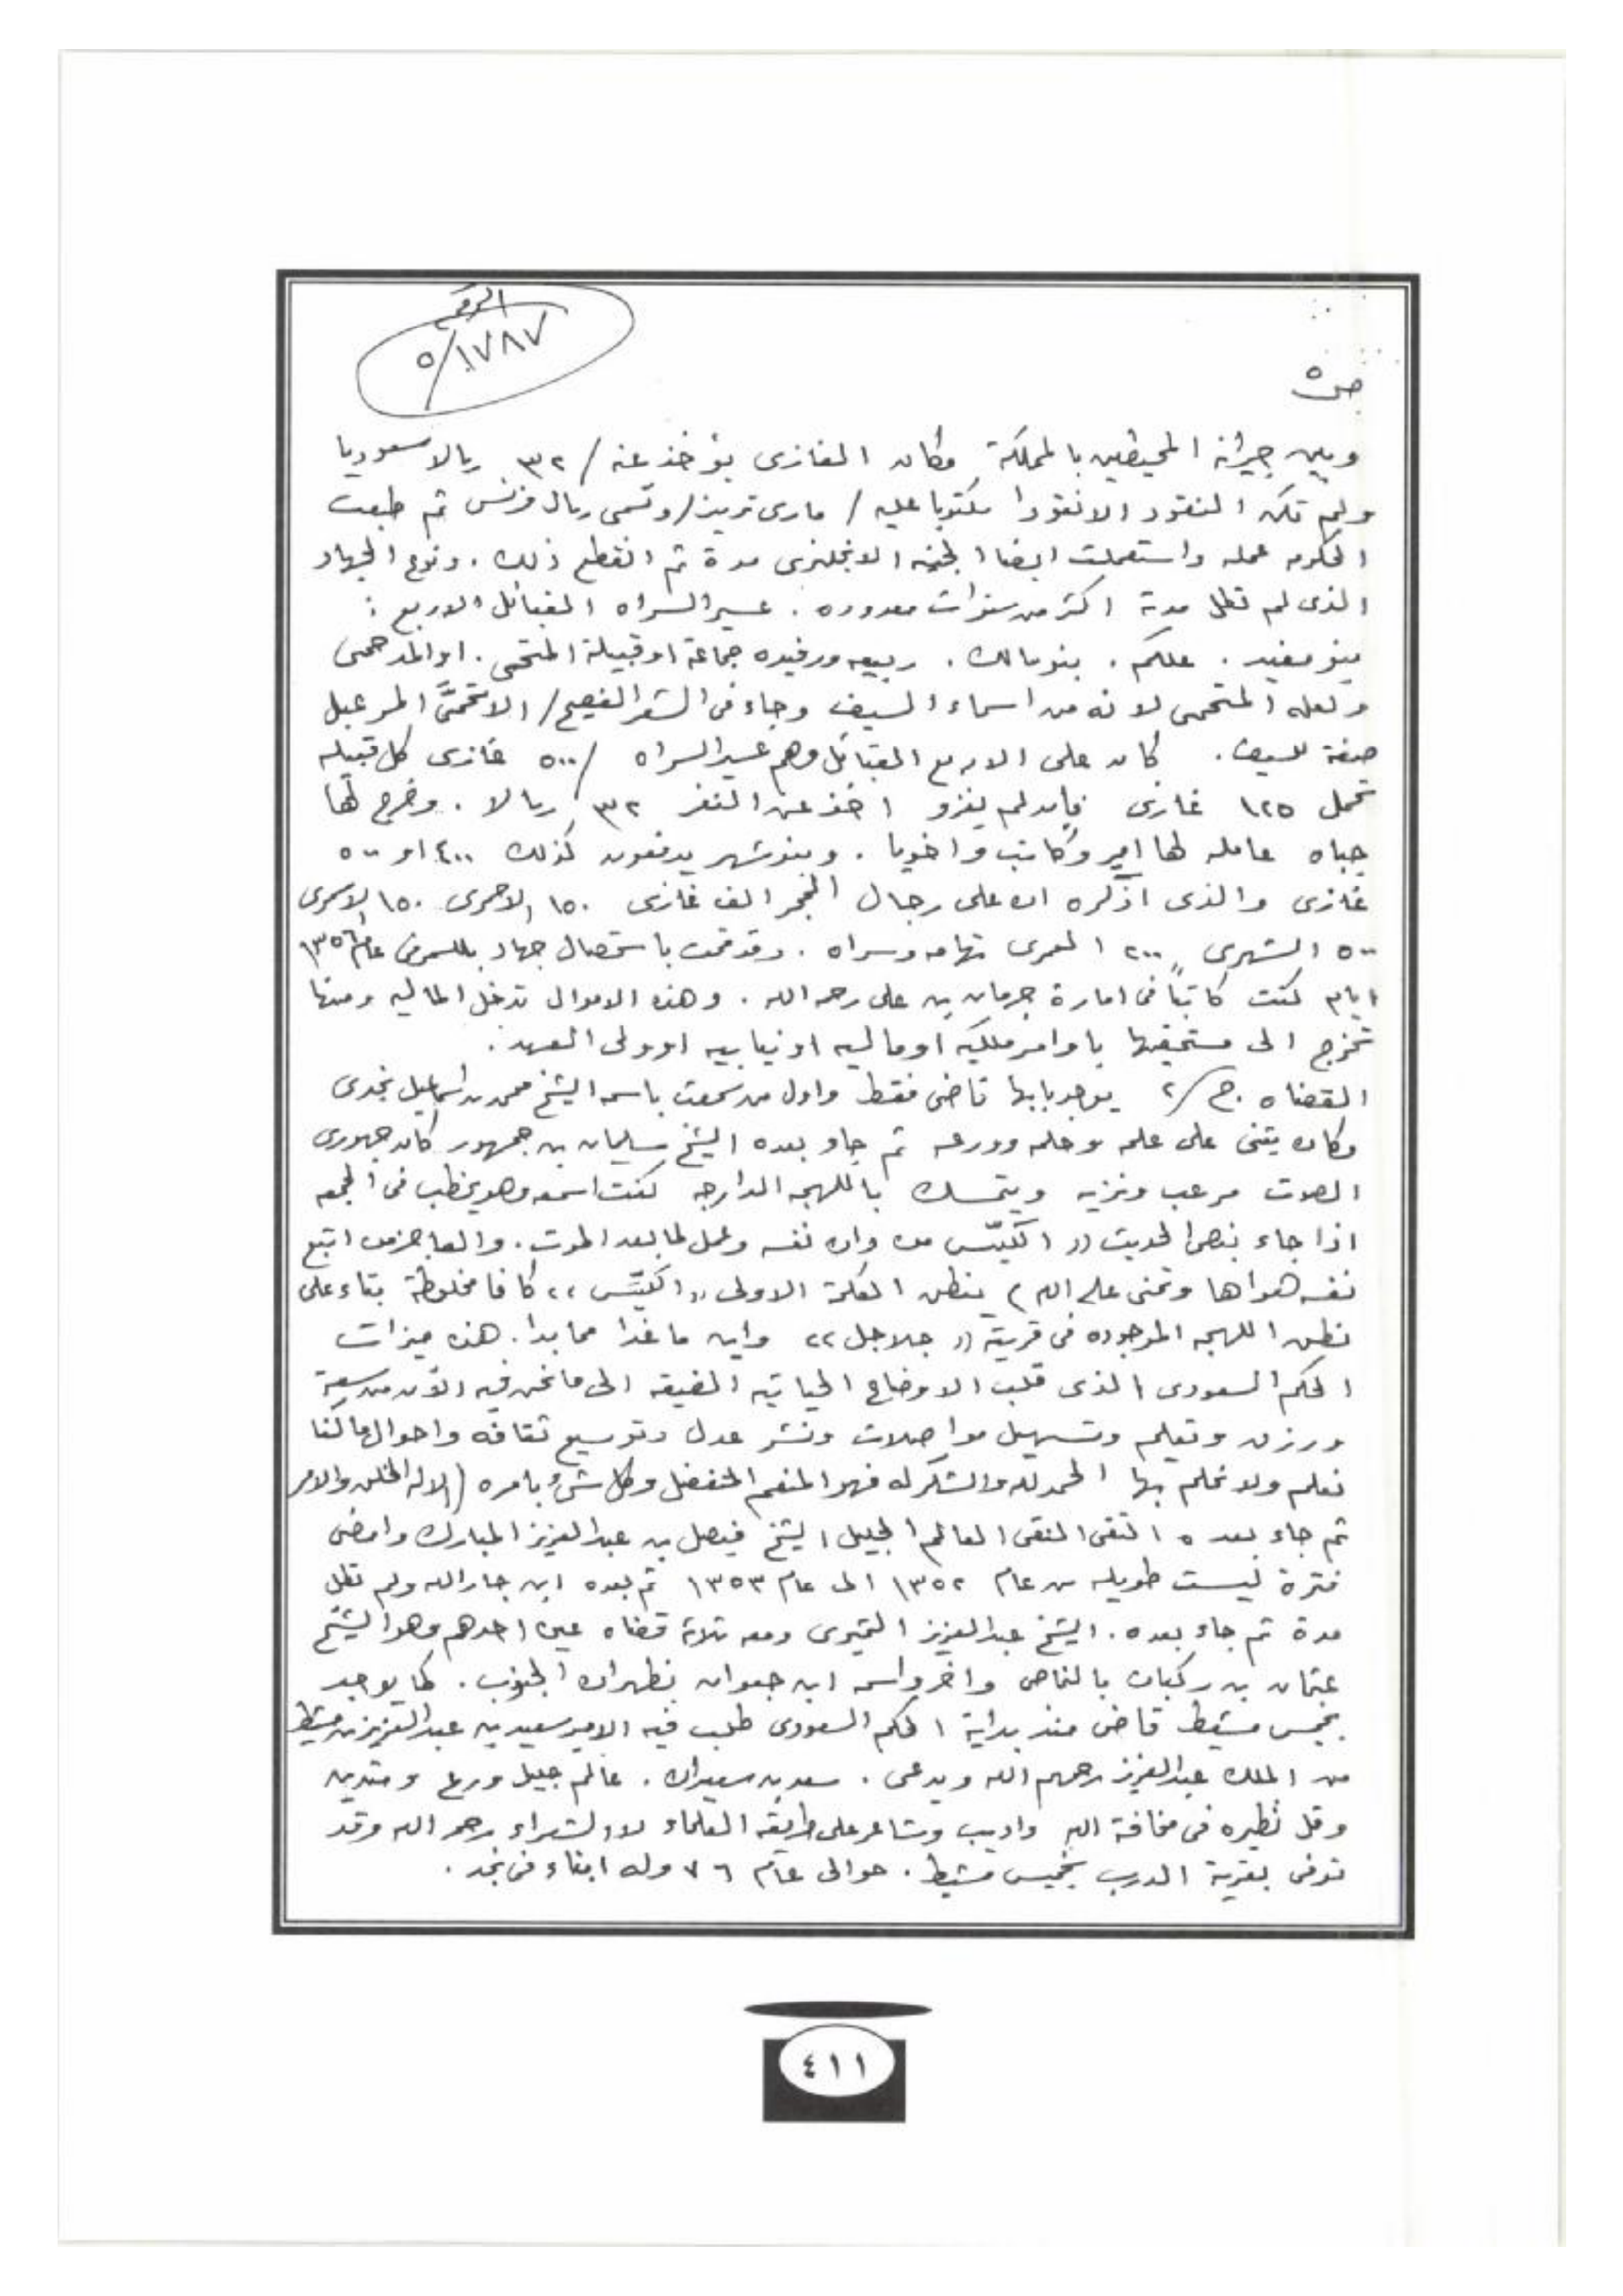 الرقم
٥/١٧٨٧
ص٥
وبين جيرانه المحيطين بالمملكة وكان الغازى يؤخذ عنه / ٣٢ ريالا سعوديا
ولم تكن النقود الا نقودا مكتوبا عليه / مارى تريز / وتسمى ريال فرنس ثم طبعت
الحكومه عمله واستعملت ايضا الجنيه الانجليزى مدة ثم انقطع ذلك . ونوع الجهاد
الذى لم تظل مدته اكثر من سنوات معدوده . عسير السراه القبائل الاربع :
بنو مغيد . علكم . بنو مالك . ربيعه ورفيده جماعة او قبيلة المتحمى . او المدحمى
ولعله المتحمى لانه من اسماء السيف وجاء فى الشعر الفصيح / الاتحمىَّ المرعبل
صفة للسيف . كان على الاربع القبائل وهم عسير السراه / ٥٠٠ غازى كل قبيله
تحمل ١٢٥ غازى فان لم يغزو اخذ عن النفر ٣٢ ريالا . وخرج لها
جباه عامله لها امير وكاتب واخويا . وبنو شهر يدفعون كذلك ٤٠٠ او ٥٠٠
غازى والذى اذكره ان على رجال الحجر الف غازى ١٥٠ الاحمرى ١٥٠ الاسمرى
٥٠٠ الشهرى ٢٠٠ العمرى تهامه وسراه . وقد قمت باستحصال جهاد بللسمر فى عام ١٣٥٦
ايام كنت كاتباً فى امارة جرمان بن على رحمه الله . وهذه الاموال تدخل الماليه ومنها
تخرج الى مستحقيها باوامر ملكيه او ماليه او نيابيه او ولى العهد .
القضاه . ج/٢ يوجد بابها قاضى فقط واول من سمعت باسمه الشيخ محمد بن اسماعيل نجدى
وكان يثنى على علمه وحلمه وورعه ثم جاء بعده الشيخ سليمان بن جمهور كان جهورى
الصوت مرعب ونزيه ويتمسك باللهجه الدارجه كنت اسمعه وهو يخطب فى الجمعه
اذا جاء بنص الحديث (( الكيّس من دان نفسه وعمل لما بعد الموت . والعاجز من اتبع
نفسه هواها وتمنى على الله ) ينطق الكلمة الاولى (( الكيّس )) كافا مخلوطة بتاء على
نطق اللهجه الموجوده فى قرية (( جلاجل )) واين ما غدا مما بدا . هذه ميزات
الحكم السعودى الذى قلب الاوضاع الحياتيه الضيقه الى ما نحن فيه الآن من سعة
ورزق وتعليم وتسهيل مواصلات ونشر عدل وتوسيع ثقافه واحوال ما كنا
نعلم ولا نحلم بها الحمد لله والشكر له فهو المنعم المتفضل وكل شئ بامره (الا له الخلق والامر
ثم جاء بعده التقى النقى العالم الجليل الشيخ فيصل بن عبدالعزيز المبارك وامضى
فترة ليست طويله من عام ١٣٥٢ الى عام ١٣٥٣ ثم بعده ابن جارالله ولم تطل
مدة ثم جاء بعده . الشيخ عبدالعزيز التميرى ومعه ثلاثة قضاه عين احدهم وهو الشيخ
عثمان بن ركبان بالنماص واخر واسمه ابن جعوان بظهران الجنوب . كما يوجد
بخميس مشيط قاضى منذ بداية الحكم السعودى طلب فيه الامير سعيد بن عبدالعزيز بن مشيط
من الملك عبدالعزيز رحمهم الله ويدعى . سعد بن سعيدان . عالم جليل ورع ومتدين
وقل نظيره فى مخافة الله واديب وشاعر على طريقة العلماء لا الشعراء رحمه الله وقد
توفى بقرية الدرب بخميس مشيط . حوالى عام ٧٦ وله ابناء فى نجد .
٤١١